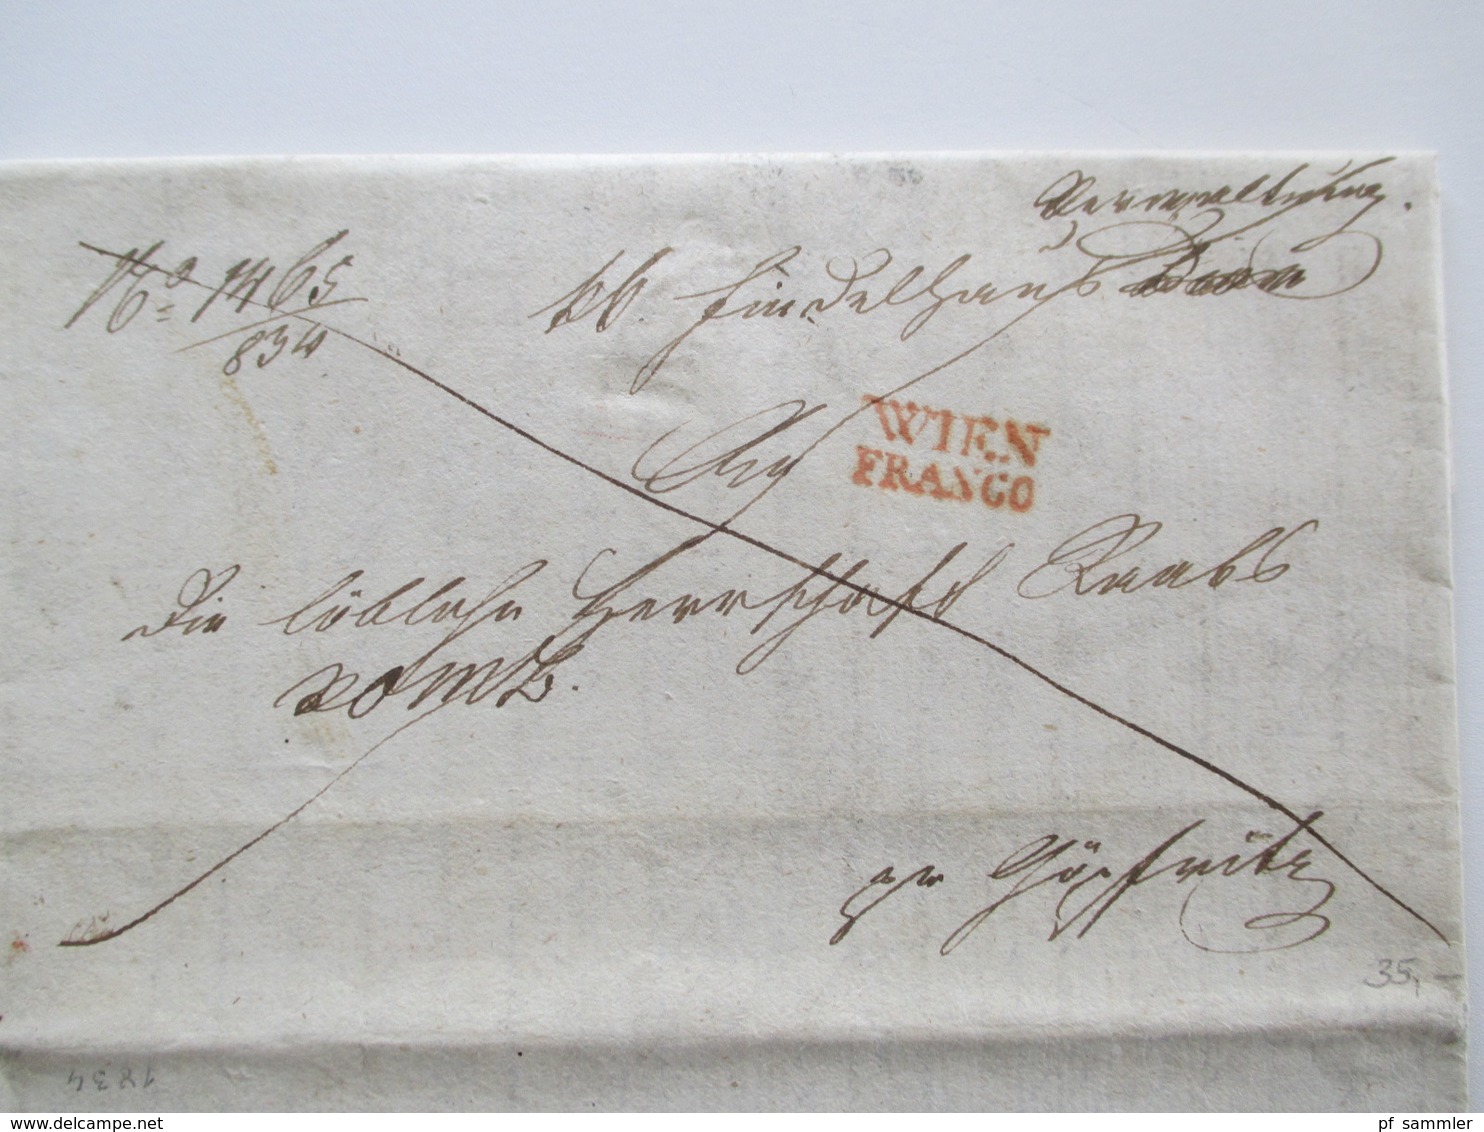 Verwaltung.
No 1465
834
kk Findelhaus
An
WIEN
FRANCO
Die löbliche Herrschaft Raabs
VOMB.
pr Göpfritz
35,-
1834
www.delcampe.net
pf_sammler